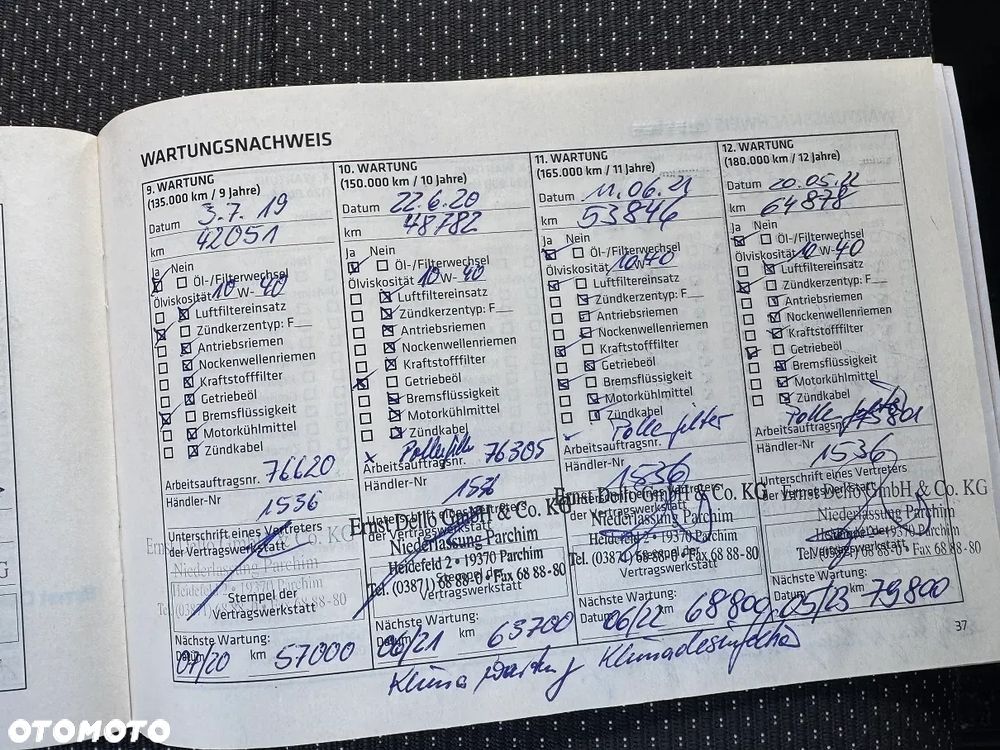 WARTUNGSNACHWEIS
9. WARTUNG
(135.000 km / 9 Jahre)
Datum 3.7.19
km 42051
Ja Nein
Öl-/Filterwechsel
Ölviskosität 10 W- 40
Luftfiltereinsatz
Zündkerzentyp: F__
Antriebsriemen
Nockenwellenriemen
Kraftstofffilter
Getriebeöl
Bremsflüssigkeit
Motorkühlmittel
Zündkabel
Arbeitsauftragsnr. 76620
Händler-Nr 1536
Unterschrift eines Vertreters
der Vertragswerkstatt
Niederlassung Parchim
Heidefeld 2 • 19370 Parchim
Stempel der
Vertragswerkstatt
Nächste Wartung:
Datum 07/20 km 57000
10. WARTUNG
(150.000 km / 10 Jahre)
Datum 22.6.20
km 48782
Ja Nein
Öl-/Filterwechsel
Ölviskosität 10 W- 40
Luftfiltereinsatz
Zündkerzentyp: F__
Antriebsriemen
Nockenwellenriemen
Kraftstofffilter
Getriebeöl
Bremsflüssigkeit
Motorkühlmittel
Zündkabel
Arbeitsauftragsnr. 76305
Händler-Nr 1536
Unterschrift eines Vertreters
der Vertragswerkstatt
Ernst Dello GmbH & Co. KG
Niederlassung Parchim
Heidefeld 2 • 19370 Parchim
Tel. (03871) 68 88-0 • Fax 68 88-80
Stempel der
Vertragswerkstatt
Nächste Wartung:
Datum 06/21 km 63700
11. WARTUNG
(165.000 km / 11 Jahre)
Datum 11.06.21
km 53846
Ja Nein
Öl-/Filterwechsel
Ölviskosität 10 W- 40
Luftfiltereinsatz
Zündkerzentyp: F__
Antriebsriemen
Nockenwellenriemen
Kraftstofffilter
Getriebeöl
Bremsflüssigkeit
Motorkühlmittel
Zündkabel
Pollenfilter
Arbeitsauftragsnr.
Händler-Nr 1536
Unterschrift eines Vertreters
der Vertragswerkstatt
Ernst Dello GmbH & Co. KG
Niederlassung Parchim
Heidefeld 2 • 19370 Parchim
Tel. (03871) 68 88-0 • Fax 68 88-80
Stempel der
Vertragswerkstatt
Nächste Wartung:
Datum 06/22 km 68800
12. WARTUNG
(180.000 km / 12 Jahre)
Datum 20.05.22
km 64878
Ja Nein
Öl-/Filterwechsel
Ölviskosität 10 W- 40
Luftfiltereinsatz
Zündkerzentyp: F__
Antriebsriemen
Nockenwellenriemen
Kraftstofffilter
Getriebeöl
Bremsflüssigkeit
Motorkühlmittel
Zündkabel
Pollenfilter
Arbeitsauftragsnr.
Händler-Nr 1536
Unterschrift eines Vertreters
der Vertragswerkstatt
Ernst Dello GmbH & Co. KG
Niederlassung Parchim
Heidefeld 2 • 19370 Parchim
Tel. (03871) 68 88-0 • Fax 68 88-80
Stempel der
Vertragswerkstatt
Nächste Wartung:
Datum 05/23 km 79800
Klima Wartung Klimadesinfektion
37
OTOMOTO